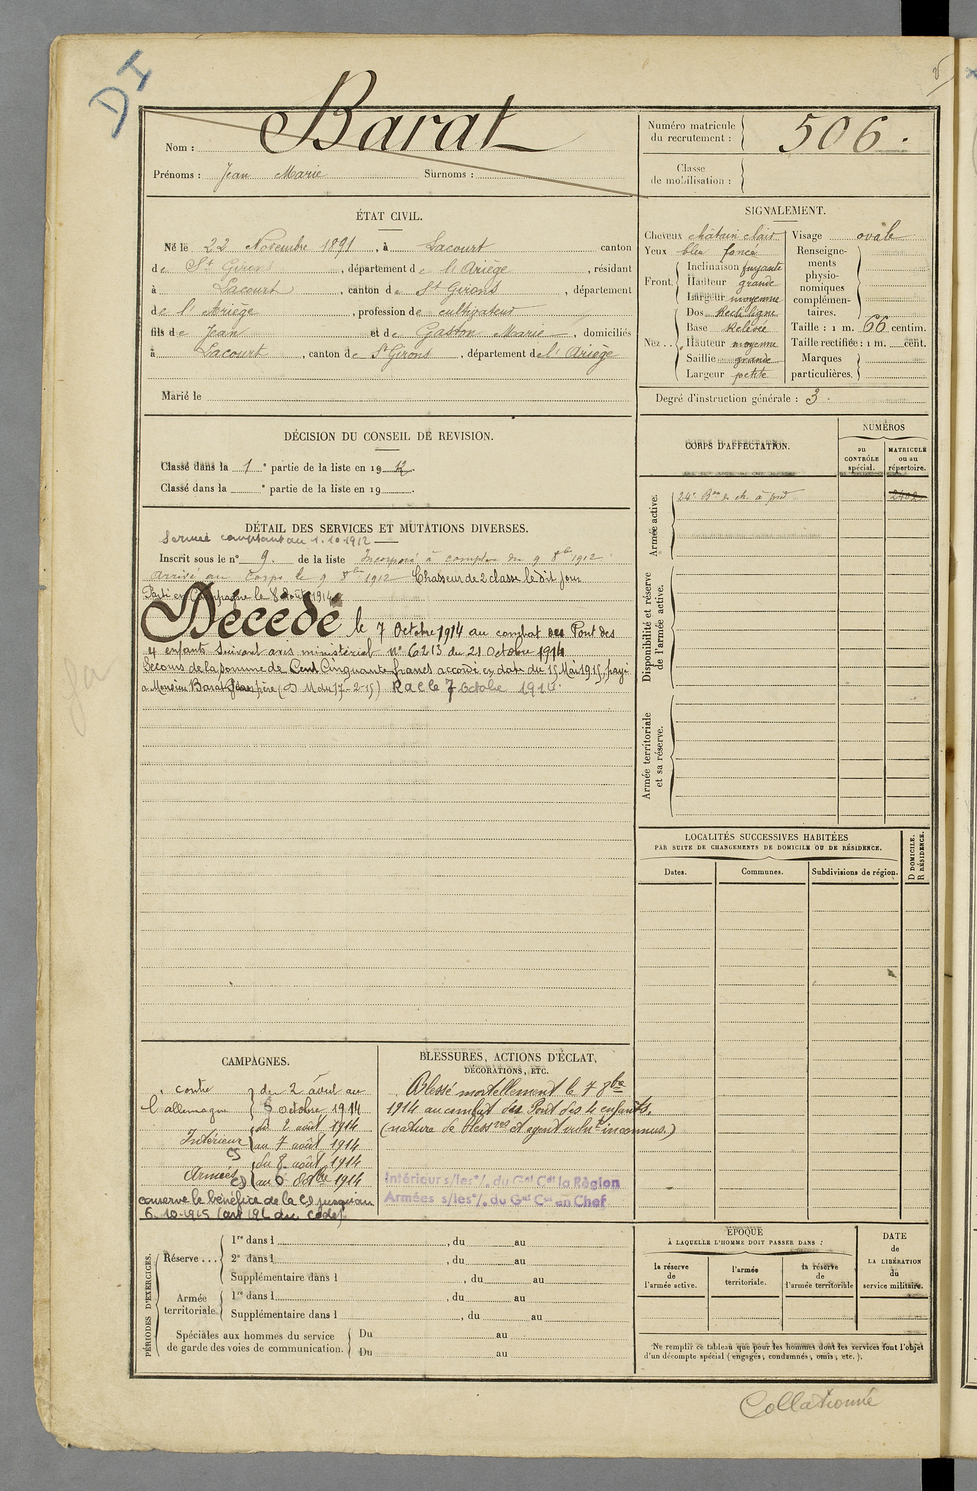 DI
Nom : Barat
Prénoms : Jean Marie Surnoms :
Numéro matricule du recrutement : 506.
Classe de mobilisation :
ÉTAT CIVIL.
Né le 22 Novembre 1891, à Lacourt canton
de St Girons, département de l'Ariège, résidant
à Lacourt, canton de St Girons, département
de l'Ariège, profession de cultivateur
fils de Jean et de Gaston Marie, domiciliés
à Lacourt, canton de St Girons, département de l'Ariège
Marié le
SIGNALEMENT.
Cheveux châtain clair
Yeux bleu foncé
Front. Inclinaison fuyante
Hauteur grande
Largeur moyenne
Nez . . Dos Rectiligne
Base Relevée
Hauteur moyenne
Saillie grande
Largeur petite
Visage ovale
Renseignements physionomiques complémentaires.
Taille : 1 m. 66 centim.
Taille rectifiée : 1 m. cent.
Marques particulières.
Degré d'instruction générale : 3.
DÉCISION DU CONSEIL DE REVISION.
Classé dans la 1e partie de la liste en 1912.
Classé dans la e partie de la liste en 19 .
CORPS D'AFFECTATION.
NUMÉROS
au CONTRÔLE spécial.
MATRICULE ou au répertoire.
Armée active.
24e Bon de ch. à pied
2402
Disponibilité et réserve de l'armée active.
Armée territoriale et sa réserve.
DÉTAIL DES SERVICES ET MUTATIONS DIVERSES.
Service comptant du 1.10.1912
Inscrit sous le n° 9. de la liste Incorporé à compter du 9 8bre 1912
arrivé au Corps le 9 8bre 1912 Chasseur de 2 classe le dit jour
Parti en Campagne le 8 Août 1914
Décédé le 7 Octobre 1914 au combat des Pont des
4 enfants suivant avis ministériel n° 6213 du 21 Octobre 1914
Secours de la somme de Cent Cinquante francs accordé en date du 15 Mai 1915, payé
a Monsieur Barat Jean père (D M du 17-2-15) R a c le 7 Octobre 1914.
LOCALITÉS SUCCESSIVES HABITÉES
PAR SUITE DE CHANGEMENTS DE DOMICILE OU DE RÉSIDENCE.
Dates.
Communes.
Subdivisions de région.
D DOMICILE.
R RÉSIDENCE.
CAMPAGNES.
contre l'allemagne du 2 août au 6 octobre 1914
Intérieur CS du 2 août 1914 au 7 août 1914
Armées CD du 8 août 1914 au 6 octobre 1914
conserve le bénéfice de la CD jusqu'au
6-10-1915 (art 196 du code)
BLESSURES, ACTIONS D'ÉCLAT,
DÉCORATIONS, ETC.
Blessé mortellement le 7 8bre
1914 au combat des Pont des 4 enfants.
(nature de bless res et agent vulnt inconnus.)
Intérieur s/les °/. du Gal Cdt la Région
Armées s/les °/. du Gal Cdt en Chef
PÉRIODES D'EXERCICES.
Réserve . . . 1re dans l , du au
2e dans l , du au
Supplémentaire dans l , du au
Armée territoriale. 1re dans l , du au
Supplémentaire dans l , du au
Spéciales aux hommes du service de garde des voies de communication. Du au
Du au
ÉPOQUE
À LAQUELLE L'HOMME DOIT PASSER DANS :
la réserve de l'armée active.
l'armée territoriale.
la réserve de l'armée territoriale
DATE de LA LIBÉRATION du service militaire.
Ne remplir ce tableau que pour les hommes dont les services font l'objet
d'un décompte spécial (engagés, condamnés, omis, etc.).
Collationné